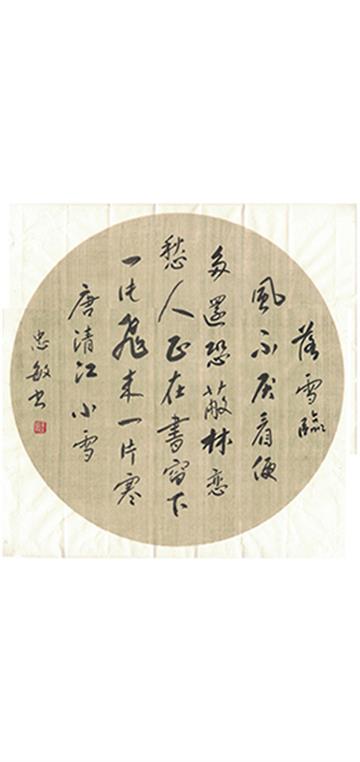 落雪臨
風不厌看便
多還恐蔽林恋
愁人正在書窗下
一片飛来一片寒
唐清江小雪
忠敏书